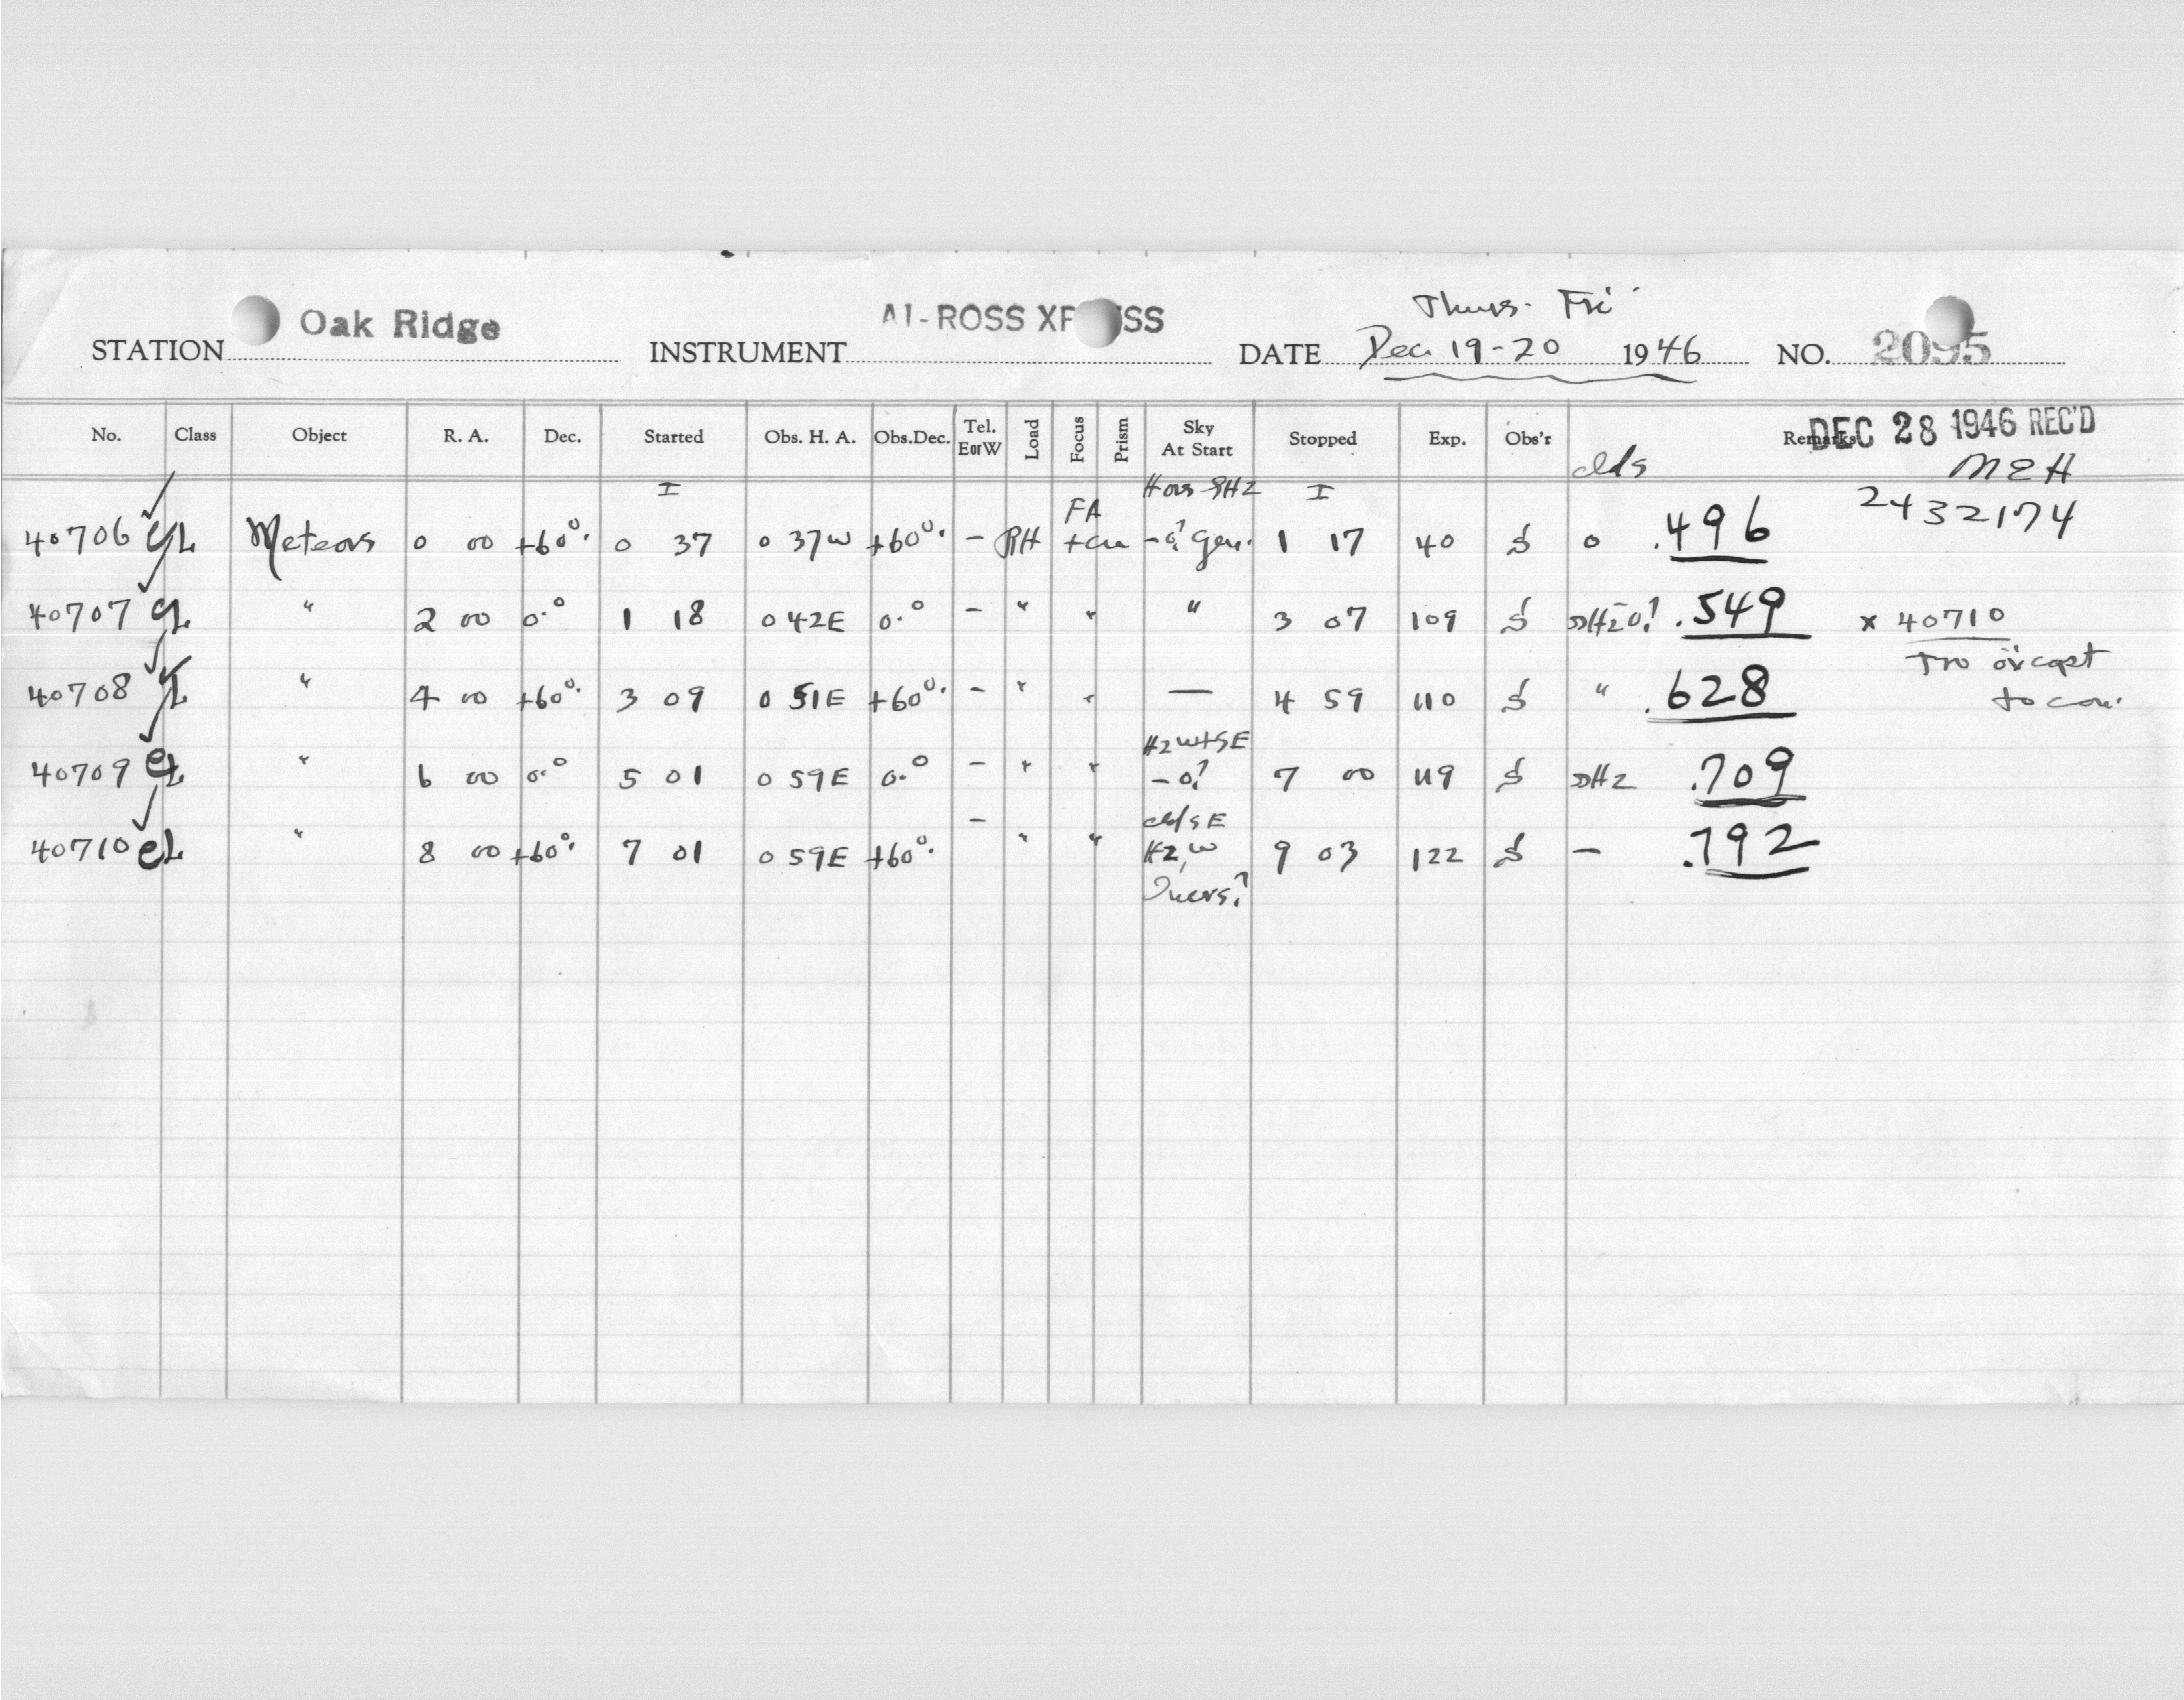 Thurs. Fri
STATION Oak Ridge INSTRUMENT AI-ROSS XP SS DATE Dec. 19-20 1946 NO. 2095
No. Class Object R. A. Dec. Started Obs. H. A. Obs.Dec. Tel. EorW Load Focus Prism Sky At Start Stopped Exp. Obs'r Remarks
DEC 28 1946 REC'D
clds MEH
2432174
40706 Meteors 0 00 +60° 0 37 0 37W +60° - RH FA 1 17 40 0 .496
40707 " 2 00 0.° 1 18 0 42E 0.° - " " " 3 07 109 .549 x 40710
40708 " 4 00 +60° 3 09 0 51E +60° - " " — 4 59 110 " .628
40709 " 6 00 0.° 5 01 0 59E 0.° - " " Hz W+SE -0? 7 00 119 .709
40710 " 8 00 +60° 7 01 0 59E +60° - " " clds E Hz, W 9 03 122 — .792